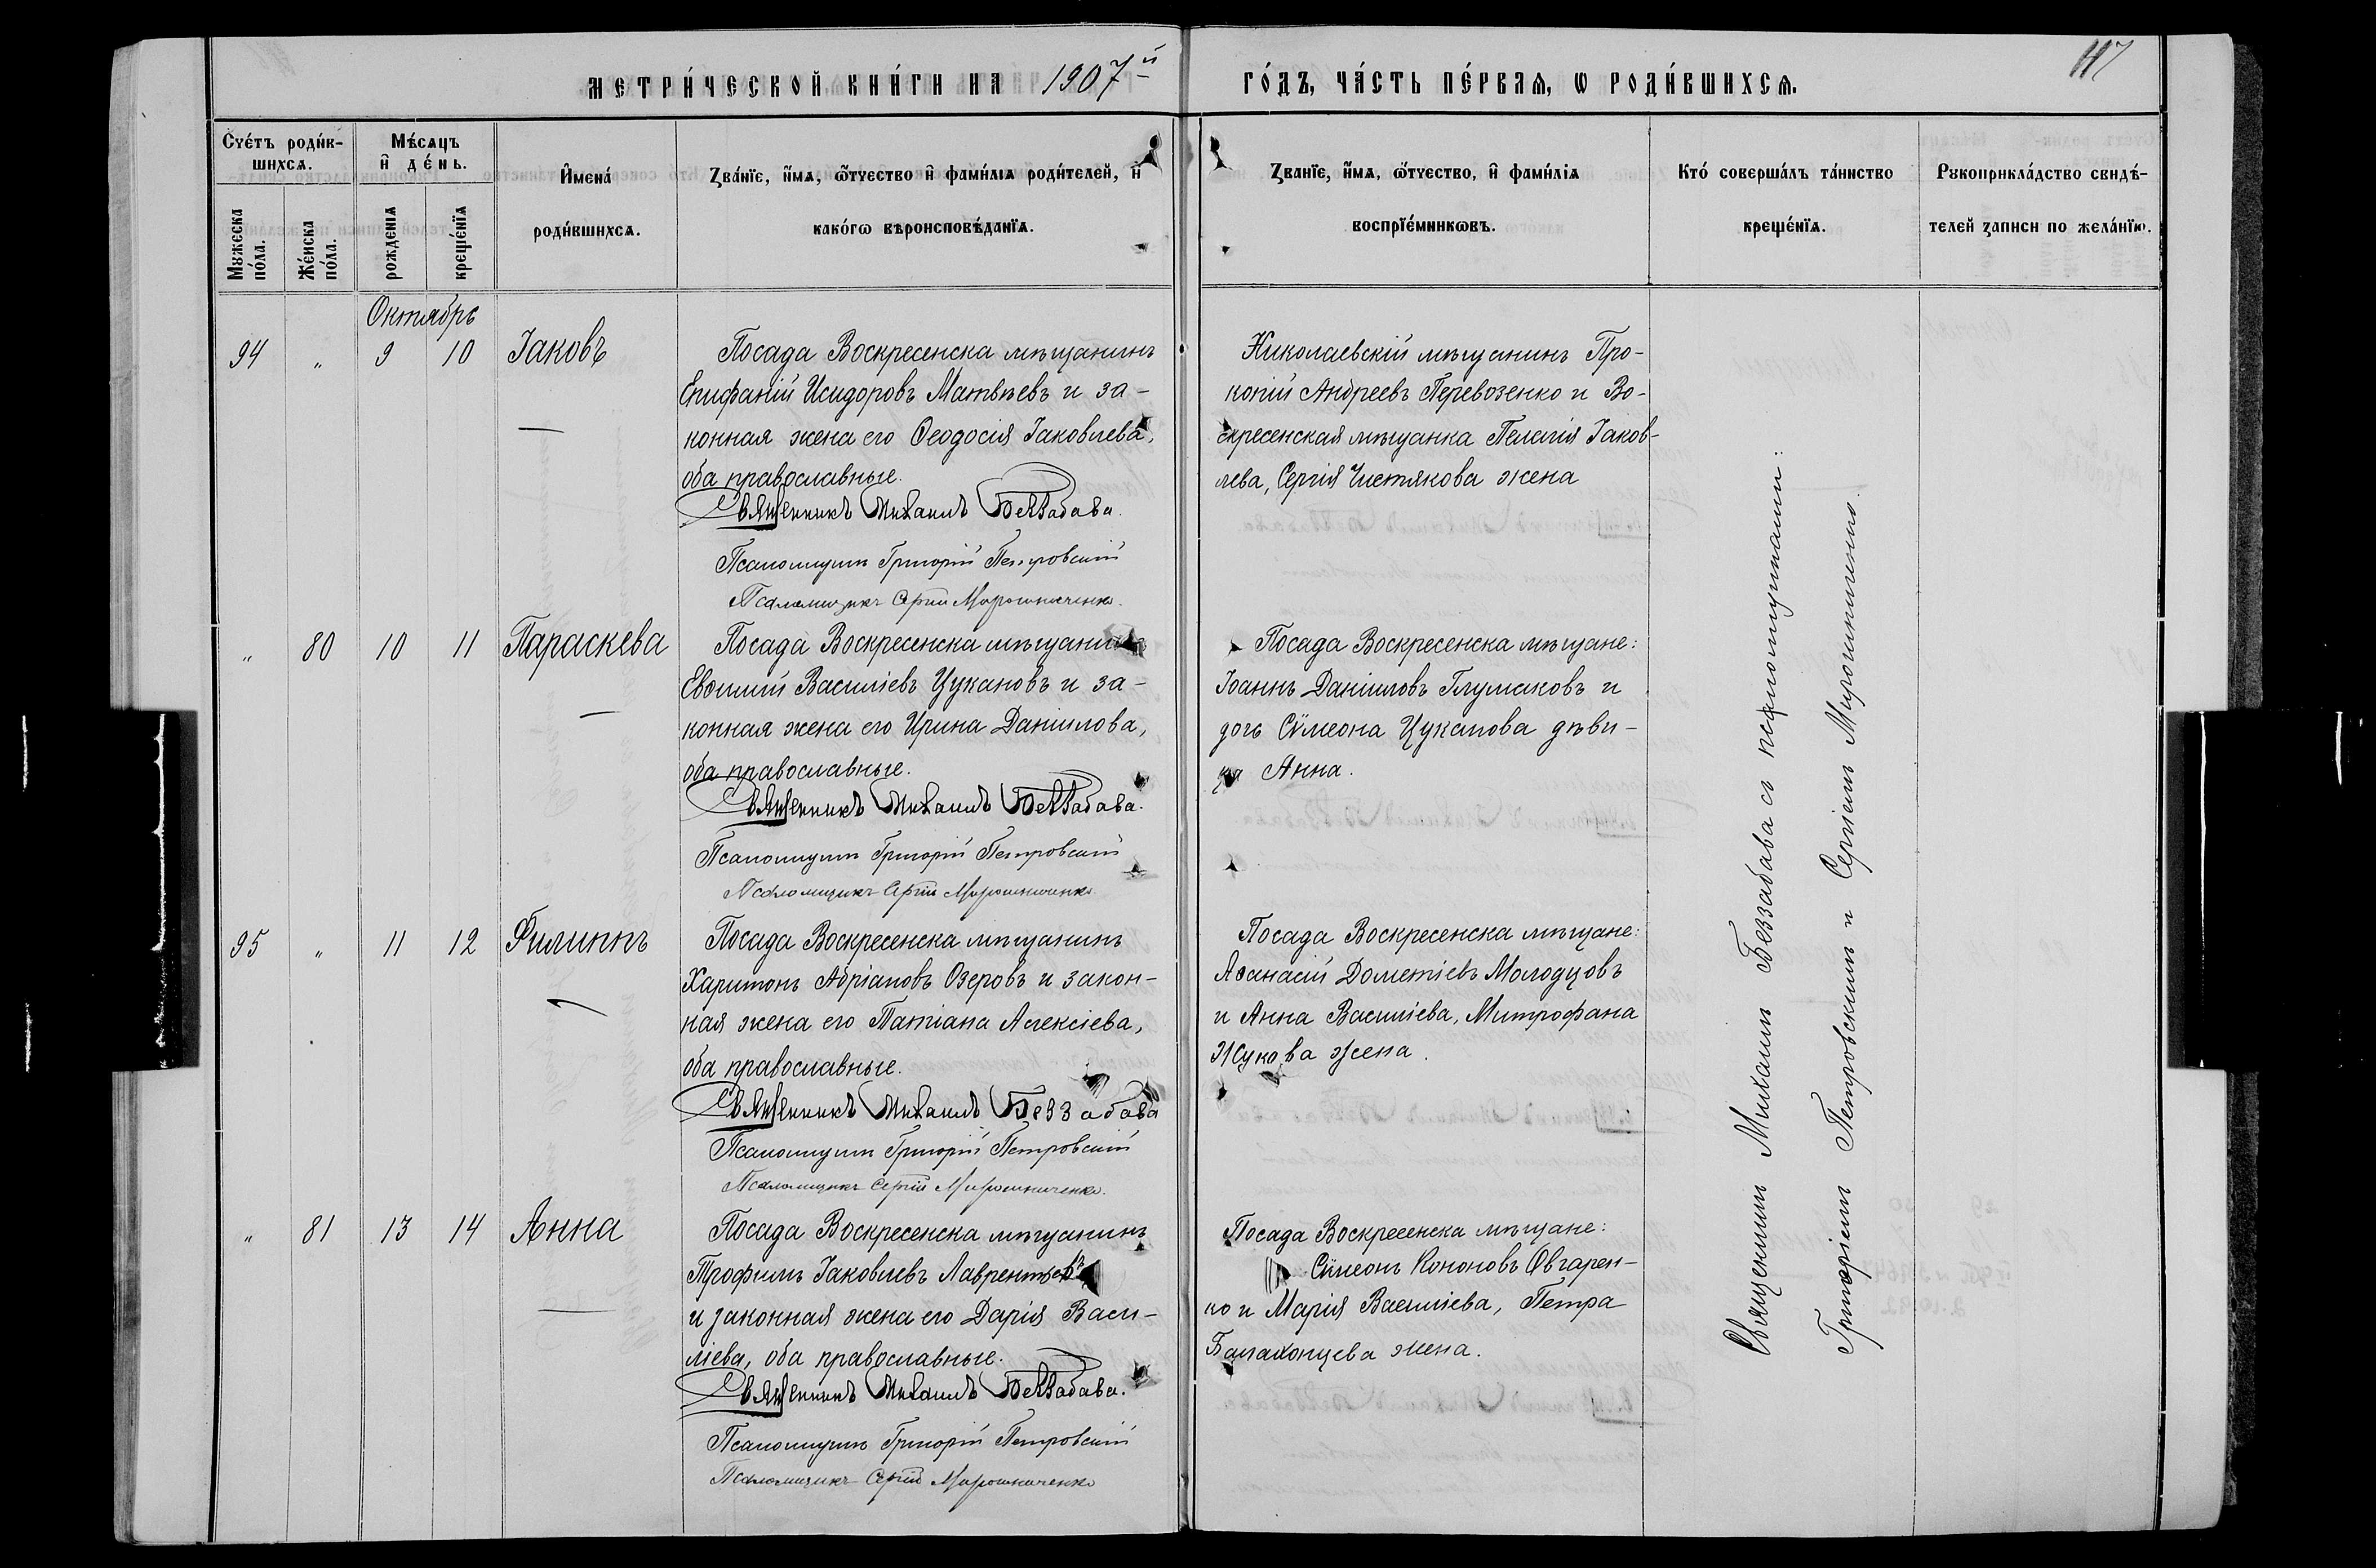 МЕТРИ́ЧЕСКОЙ КНИ́ГИ НА 1907й ГО́ДЪ, ЧА́СТЬ ПЕ́РВАѦ, Ѡ РОДИ́ВШИХСѦ.
117
Сче́тъ роди́вшихсѧ.
Мꙋжеска по́ла.
Же́нска по́ла.
Мѣ́сѧцъ и҆ де́нь.
рожденїѧ
креще́нїѧ
И҆мена́
роди́вшихсѧ.
Зва́нїе, и҆́мѧ, ѻ҆́тчество и҆ фами́лїѧ роди́телей, и҆
како́гѡ вѣроисповѣ́данїѧ.
Званїе, и҆́мѧ, ѻ҆́тчество, и҆ фами́лїѧ
воспрїе́мникѡвъ.
Кто́ соверша́лъ та́инство
креще́нїѧ.
Рꙋкоприкла́дство свидѣ́-
телей записи по жела́нїю.
Октябрь
94 " 9 10 Іаковъ
Посада Воскресенска мѣщанинъ
Епифаній Исидоровъ Матвѣевъ и за-
конная жена его Ѳеодосія Іаковлева,
оба православные.
Священникъ Михаилъ Беззабава.
Псаломщикъ Григорій Петровскій
Псаломщикъ Сергій Мирошниченко.
Николаевскій мѣщанинъ Про-
копій Андреевъ Перевозенко и Во-
скресенская мѣщанка Пелагія Іаков-
лева, Сергія Чистякова жена
" 80 10 11 Параскева
Посада Воскресенска мѣщанинъ
Евѳимій Василіевъ Цукановъ и за-
конная жена его Ирина Даніилова,
оба православные.
Священникъ Михаилъ Беззабава.
Псаломщикъ Григорій Петровскій
Псаломщикъ Сергій Мирошниченко
Посада Воскресенска мѣщане:
Іоаннъ Даніиловъ Глумаковъ и
дочь Сѵмеона Цуканова дѣви-
ца Анна.
95 " 11 12 Филиппъ
Посада Воскресенска мѣщанинъ
Харитонъ Адріановъ Озеровъ и закон-
ная жена его Татіана Алексіева,
оба православные.
Священникъ Михаилъ Беззабава
Псаломщикъ Григорій Петровскій
Псаломщикъ Сергій Мирошниченко.
Посада Воскресенска мѣщане:
Аѳанасій Дометіевъ Молодцовъ
и Анна Василіева, Митрофана
Жукова жена.
" 81 13 14 Анна
Посада Воскресенска мѣщанинъ
Трофимъ Іаковлевъ Лаврентьевъ
и законная жена его Дарія Васи-
ліева, оба православные.
Священникъ Михаилъ Беззабава.
Псаломщикъ Григорій Петровскій
Псаломщикъ Сергій Мирошниченко
Посада Воскресенска мѣщане:
Сѵмеонъ Кононовъ Овчарен-
ко и Марія Василіева, Петра
Балахонцева жена.
Священникъ Михаилъ Беззабава съ псаломщиками:
Григоріемъ Петровскимъ и Сергіемъ Мирошниченко.